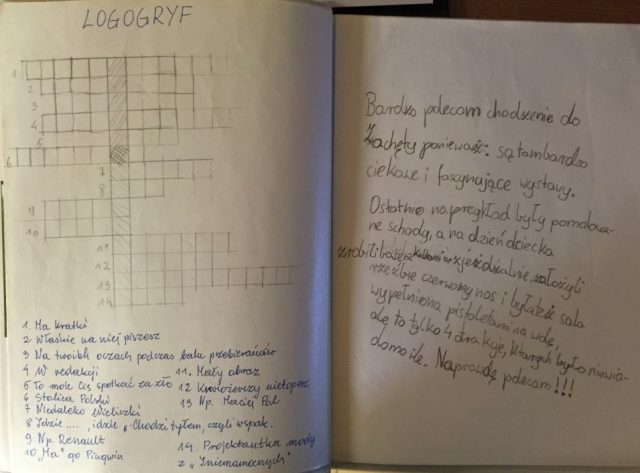 LOGOGRYF
1
2
3
4
5
6
7
8
9
10
11
12
13
14
1. Ma kratki
2 Właśnie na niej piszesz
3 Na twoich oczach podczas balu przebierańców
4 W redakcji
5 To może Cię spotkać za zło
6 Stolica Polski
7 Niedaleko Wieliczki
8 Idzie .... , idzie „Chodzi tyłem, czyli wspak.
9 Np. Renault
10 „Ma" go Pingwin
11. Mały obraz
12 Krwiożerczy nietoperz
13 Np. Maciej Pol
14. Projektantka mody
z „Iniemamocnych"
Bardzo polecam chodzenie do
Zachęty ponieważ: są tam bardzo
ciekawe i fascynujące wystawy.
Ostatnio na przegkład były pomalowa-
ne schody, a na dzień dziecka
zrobili basen z kulkami i zjeżdżalnie, założyli
rzeźbie czerwony nos i była też sala
wypełniona pistoletami na wodę,
ale to tylko 4 atrakcje, których było niewia-
domo ile. Naprawdę polecam!!!